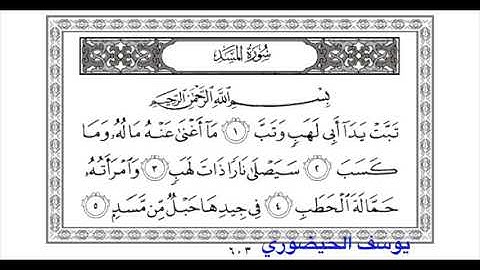 سُورَةُ المَسَدِ
بِسْمِ اللَّهِ الرَّحْمَٰنِ الرَّحِيمِ
تَبَّتْ يَدَآ أَبِى لَهَبٍ وَتَبَّ ١ مَآ أَغْنَىٰ عَنْهُ مَالُهُۥ وَمَا
كَسَبَ ٢ سَيَصْلَىٰ نَارًا ذَاتَ لَهَبٍ ٣ وَٱمْرَأَتُهُۥ
حَمَّالَةَ ٱلْحَطَبِ ٤ فِى جِيدِهَا حَبْلٌ مِّن مَّسَدٍۭ ٥
يوسف الحيضوري
٦٠٣